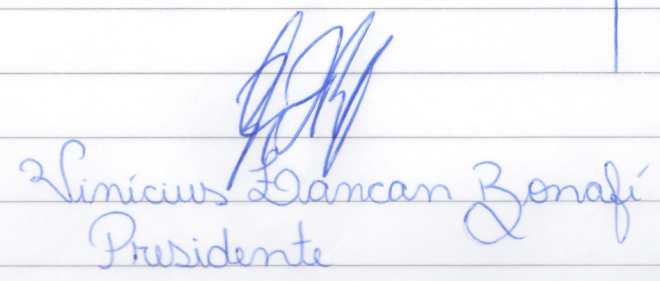 Vinícius Dancan Bonafí
Presidente